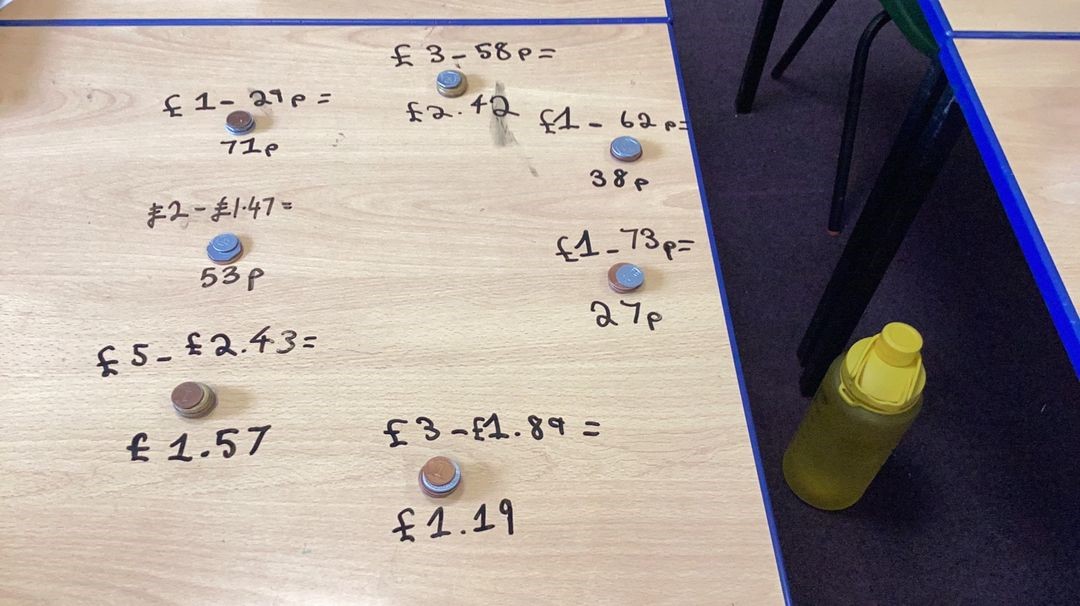 £ 3 - 58p =
£2.42
£ 1 - 29p =
71p
£1 - 62p=
38p
£2 - £1.47=
53p
£1 - 73p=
27p
£ 5 - £2.43=
£ 1.57
£ 3 - £1.89 =
£1.19